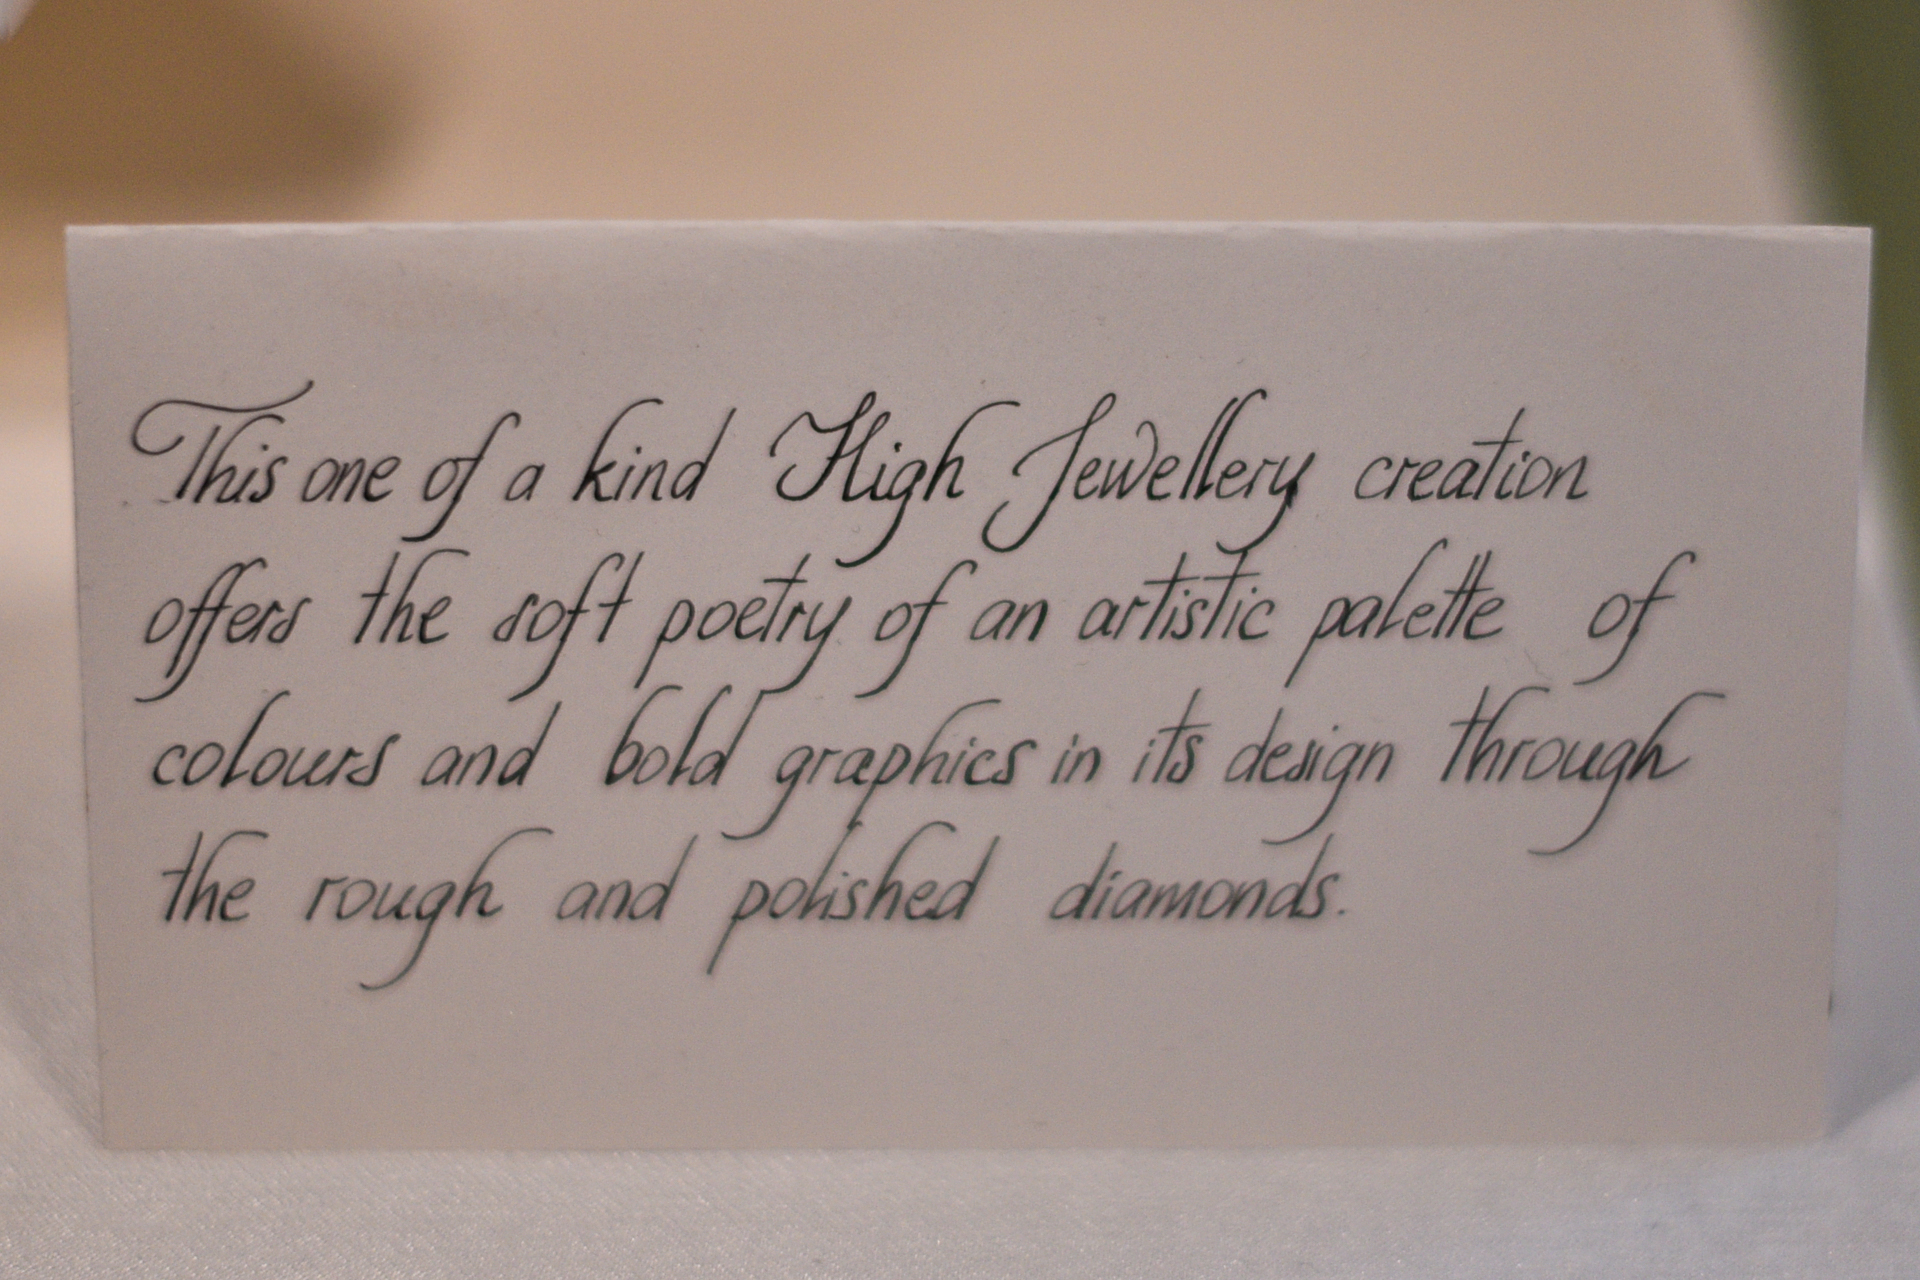 This one of a kind High Jewellery creation
offers the soft poetry of an artistic palette of
colours and bold graphics in its design through
the rough and polished diamonds.